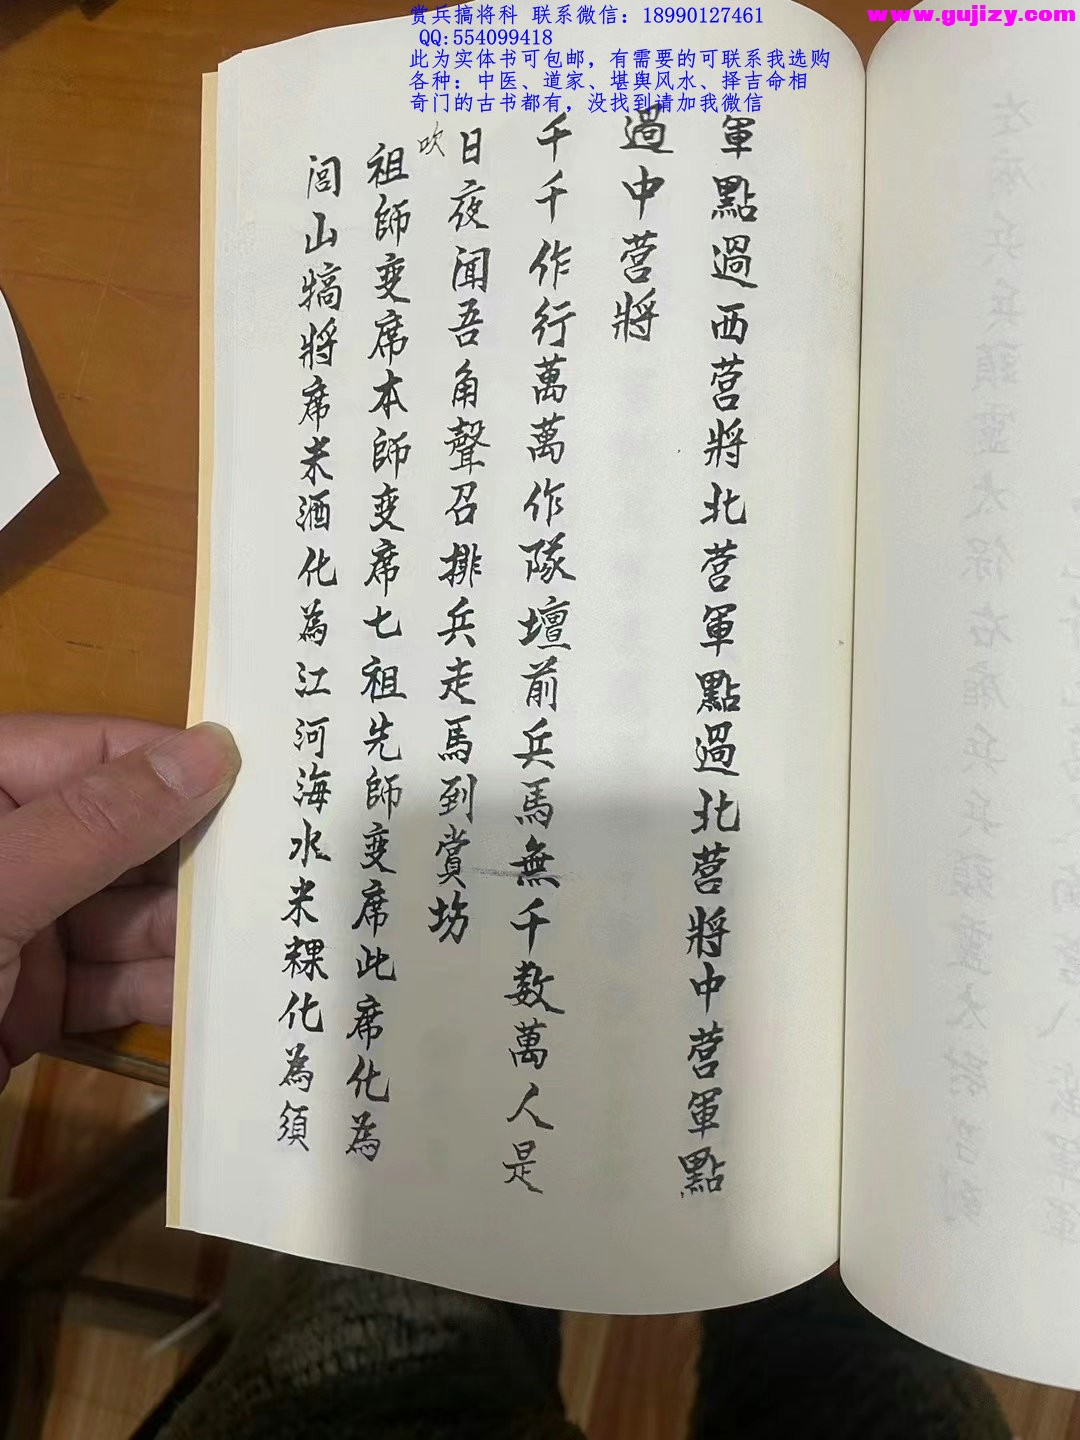 赏兵搞将科 联系微信：18990127461
QQ:554099418
此为实体书可包邮，有需要的可联系我选购
各种：中医、道家、堪舆风水、择吉命相
奇门的古书都有，没找到请加我微信
www.gujizy.com
軍點過西营將北营軍點過北营將中营軍點
過中营將
千千作行萬萬作隊壇前兵馬無千数萬人是
日夜闻吾角聲召排兵走馬到賞坊
吹
祖師变席本師变席七祖先師变席此席化為
闾山犒將席米酒化為江河海水米粿化為須